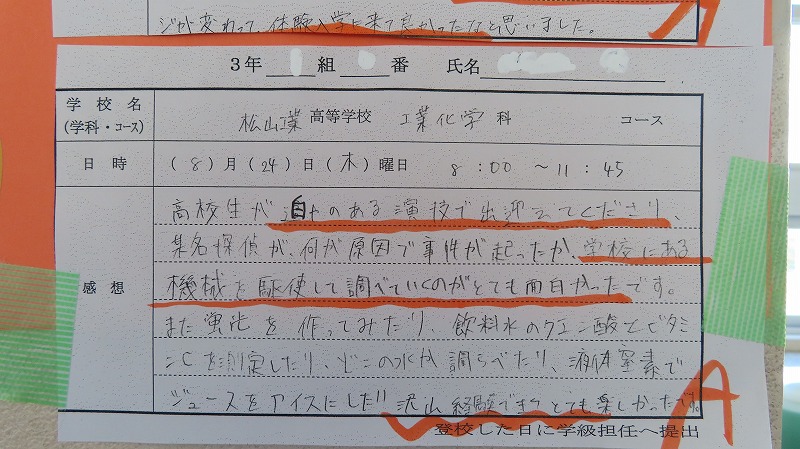 ジが変わって、体験入学に来て良かったなと思いました。
3年 組 番 氏名
学校名 松山工業 高等学校 工業化学 科 コース
(学科・コース)
日時 (8)月(24)日(木)曜日 8:00 ～11:45
感想
高校生が のある演技で出迎えてくださり、
某名探偵が、何が原因で事件が起ったか、学校にある
機械を駆使して調べていくのがとても面白かったです。
また蛍光を作ってみたり、飲料水のクエン酸とビタミ
ンCを測定したり、どこの水か調らべたり、液体窒素で
ジュースをアイスにしたり沢山経験できてとても楽しかったです。
A
登校した日に学級担任へ提出